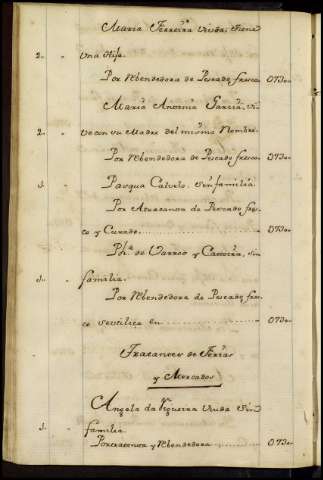 Maria Ferreira Viuda, tiene
2.. una Hija.
Por Rbendedora de Pescado fresco 073..
Maria Antonia Garcia, Vi
2.. ve con su Madre del mismo Nombre.
Por Rbendedora de Pescado fresco 073..
1. Pasqua Calvelo. Sin familia
Por Atracanta de Pescado fres
co y Curado. 073..
Ph.ª de Barros y Canoira, sin
1.. familia.
Por Rbendedora de Pescado fres
co se utiliza en 073..
Tratantes de Ferias
y Mercados
Angela da Vigueira Viuda Sin
1. familia
Por tratanta y Rbendedora 073..